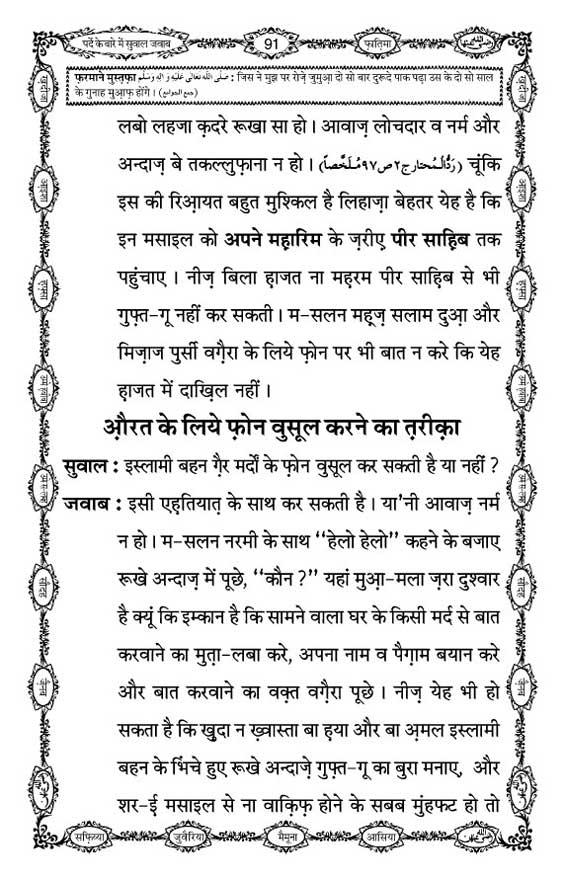 पर्दे के बारे में सुवाल जवाब
91
फ़ातिमा
फ़रमाने मुस्तफ़ा صَلَّى اللّٰهُ تَعَالٰى عَلَيْهِ وَاٰلِهٖ وَسَلَّم : जिस ने मुझ पर रोज़े जुमुआ दो सो बार दुरूदे पाक पढ़ा उस के दो सो साल
के गुनाह मुआ़फ़ होंगे। (جمع الجوامع)
लबो लहजा क़दरे रूखा सा हो। आवाज़ लोचदार व नर्म और
अन्दाज़ बे तकल्लुफ़ाना न हो। (رَدُّالْمُحتار ج٢ ص٩٧ مُلَخَّصاً) चूंकि
इस की रिआ़यत बहुत मुश्किल है लिहाज़ा बेहतर येह है कि
इन मसाइल को अपने महारिम के ज़रीए पीर साहिब तक
पहुंचाए। नीज़ बिला हाजत ना महरम पीर साहिब से भी
गुफ़्त-गू नहीं कर सकती। म-सलन महूज़ सलाम दुआ़ और
मिज़ाज पुर्सी वग़ैरा के लिये फ़ोन पर भी बात न करे कि येह
हाजत में दाख़िल नहीं।
औ़रत के लिये फ़ोन वुसूल करने का त़रीक़ा
सुवाल : इस्लामी बहन ग़ैर मर्दों के फ़ोन वुसूल कर सकती है या नहीं ?
जवाब : इसी एह़तियात़ के साथ कर सकती है। या'नी आवाज़ नर्म
न हो। म-सलन नरमी के साथ “हेलो हेलो” कहने के बजाए
रूखे अन्दाज़ में पूछे, “कौन ?” यहां मुआ़-मला ज़रा दुश्वार
है क्यूं कि इम्कान है कि सामने वाला घर के किसी मर्द से बात
करवाने का मुत़ा-लबा करे, अपना नाम व पैग़ाम बयान करे
और बात करवाने का वक़्त वग़ैरा पूछे। नीज़ येह भी हो
सकता है कि ख़ुदा न ख़्वास्ता बा ह़या और बा अ़मल इस्लामी
बहन के भिंचे हुए रूखे अन्दाज़े गुफ़्त-गू का बुरा मनाए, और
शर-ई मसाइल से ना वाक़िफ़ होने के सबब मुंहफट हो तो
सफ़िय्या
जुवैरिया
मैमूना
आसिया